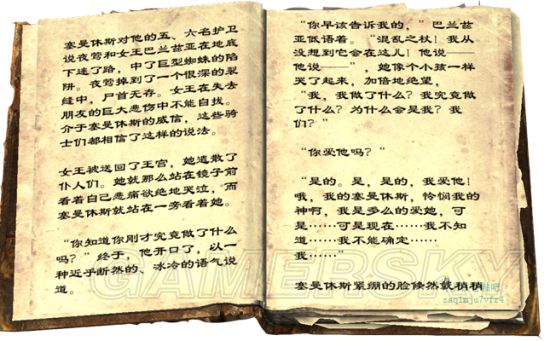 塞曼休斯对他的五、六名护卫
说夜莺和女王巴兰兹亚在地底
下迷了路，中了巨型蜘蛛的陷
阱。夜莺掉到了一个很深的裂
缝中，尸首无存。女王在失去
朋友的巨大悲伤中不能自拔。
介于塞曼休斯的威信，这些骑
士们都相信了这样的说法。
女王被送回了王宫，她遣散了
仆人们。她就那么站在镜子前
看着自己悲痛欲绝地哭泣，而
塞曼休斯就站在一旁看着她。
“你知道你刚才究竟做了什么
吗？”终于，他开口了，以一
种近乎断然的、冰冷的语气说
道。
“你早该告诉我的，”巴兰兹
亚低语着。“混乱之杖！我从
没想到它会在这儿！他说——
他说——”，她像个小孩一样
哭了起来，加倍地绝望，
“我，我做了什么？我究竟做
了什么？为什么会是我？我
们？”
“你爱他吗？”
“是的。是，是的，我爱他！
哦，我的塞曼休斯，怜悯我的
神啊，我是多么的爱她，可
是……可是现在……我不知
道……我不能确定……
我……”
塞曼休斯紧绷的脸倏然就稍稍
GAMERSKY
zaq1mju7vfr4